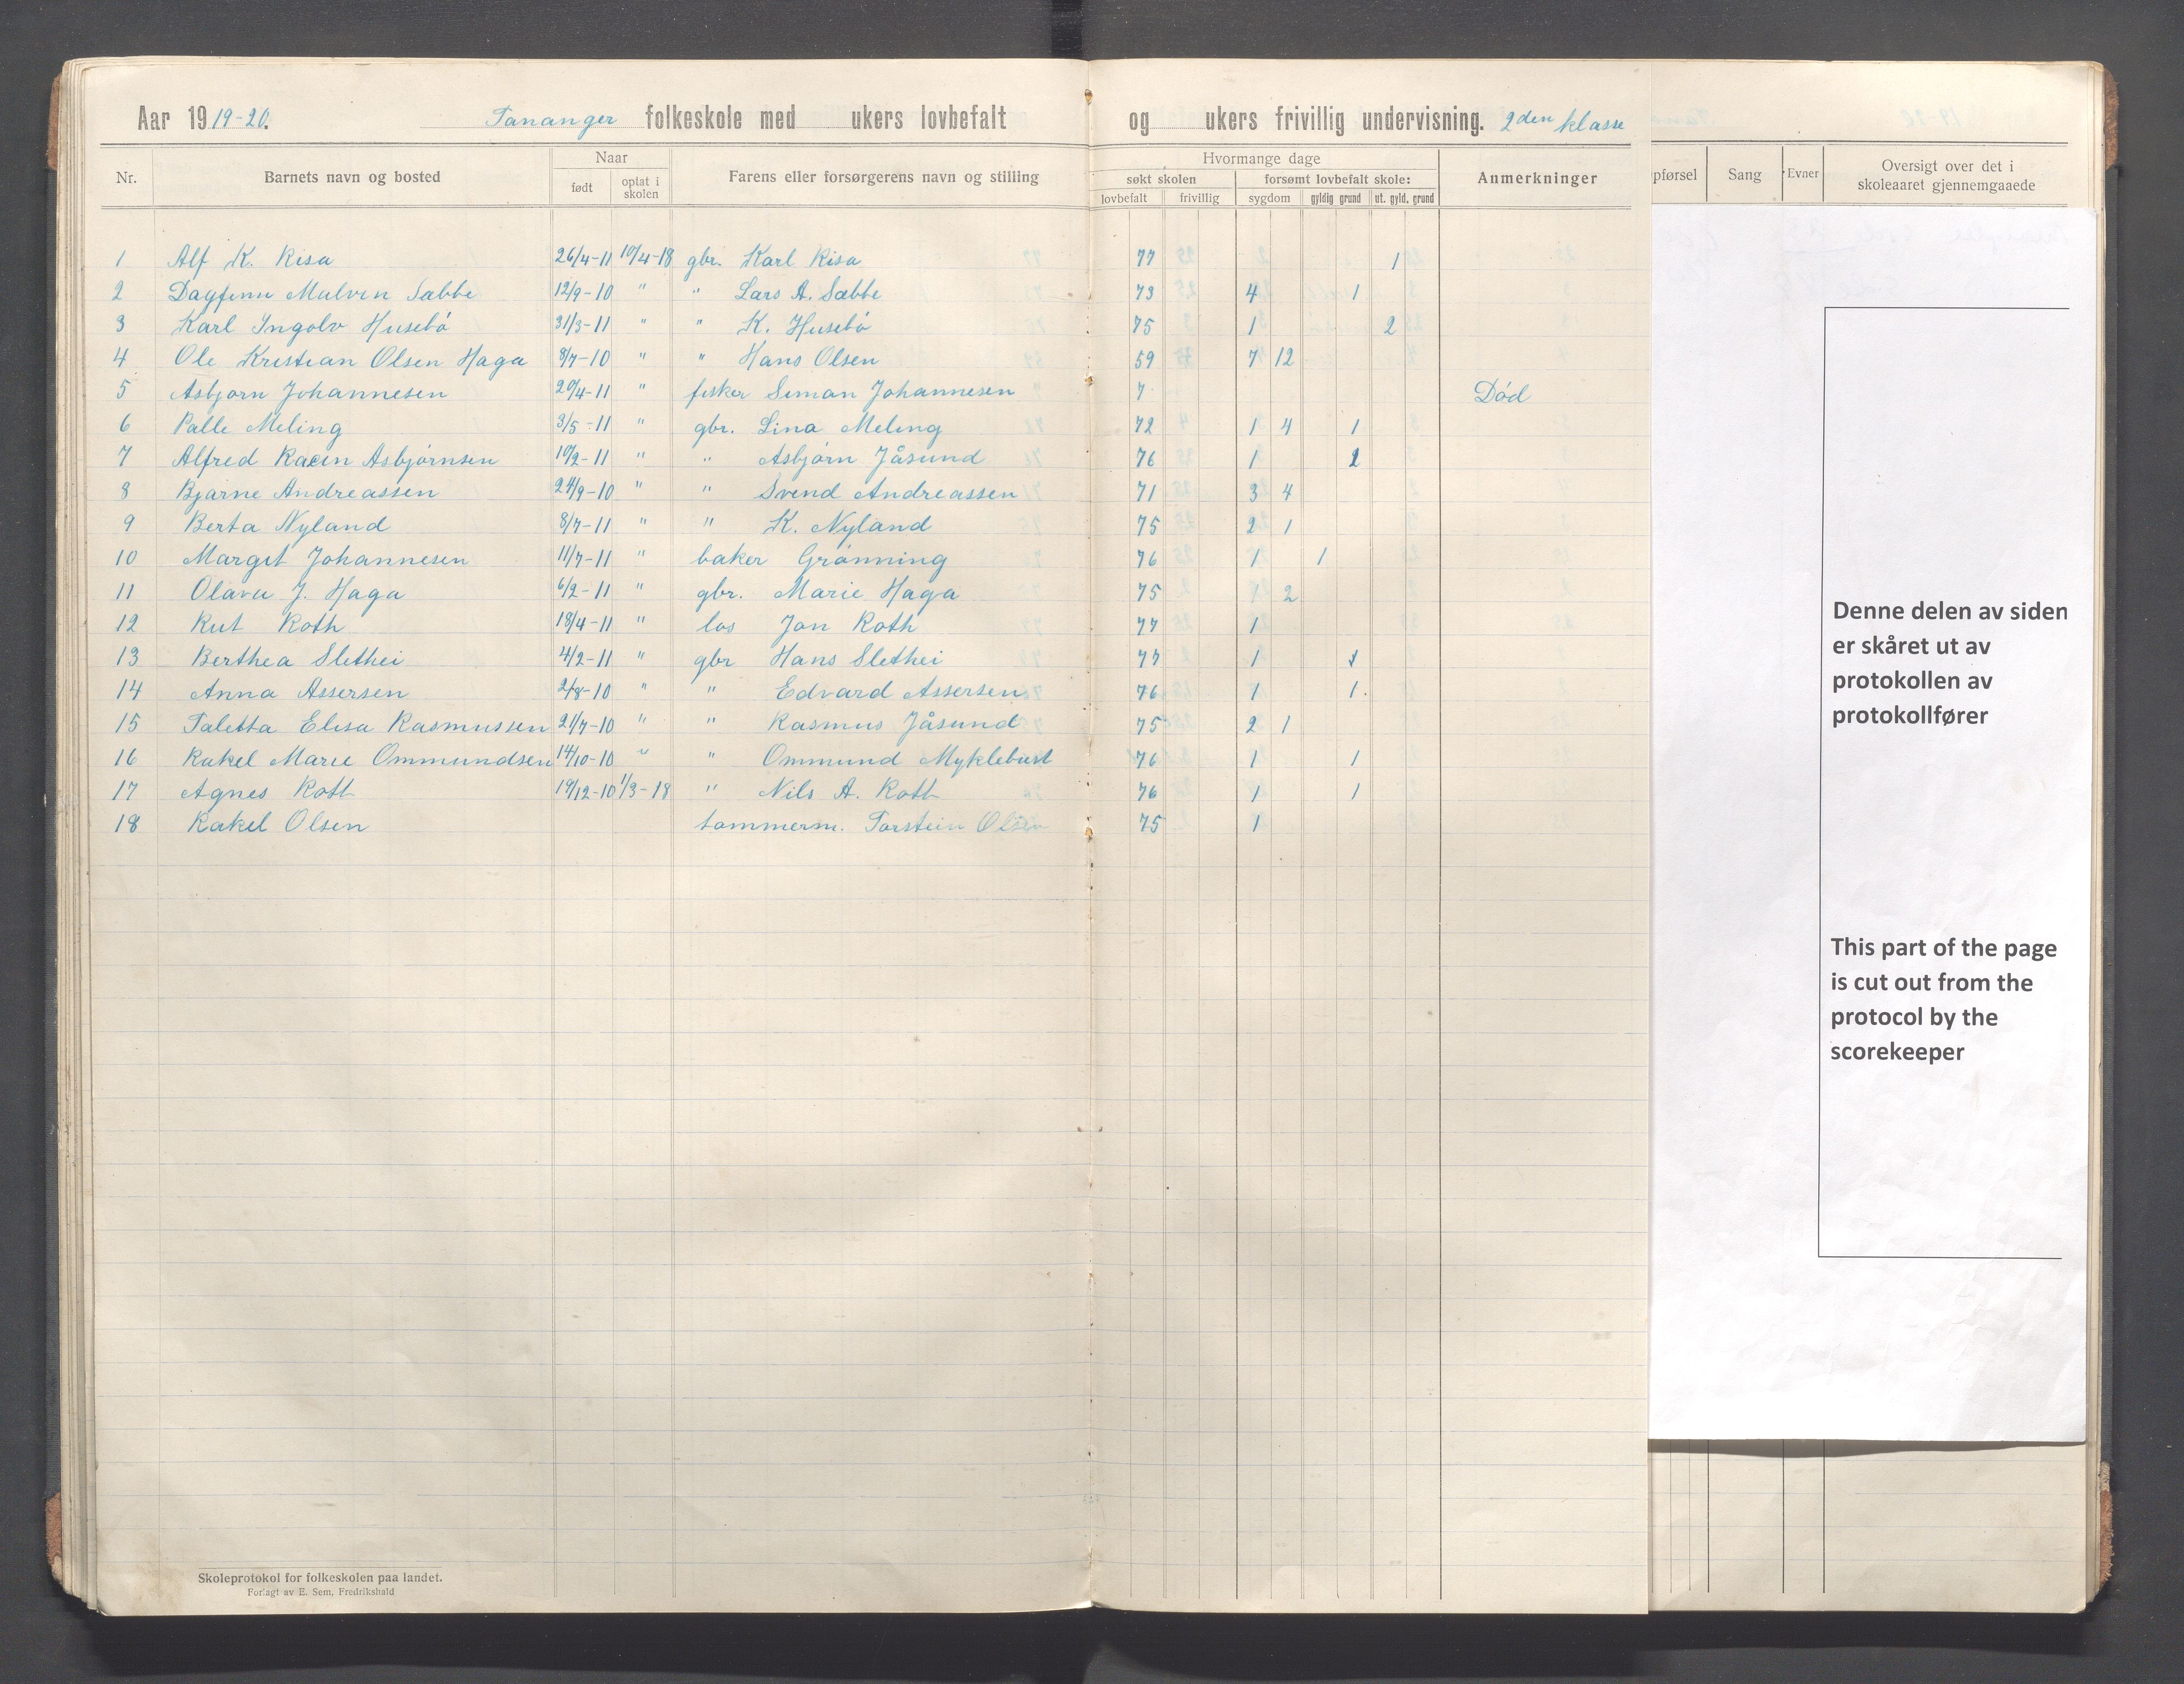 Aar 1919-20. Tananger folkeskole med ukers lovbefalt og ukers frivillig undervisning. 2den klasse
Nr. Barnets navn og bosted Naar født optat i skolen Farens eller forsørgerens navn og stilling Hvormange dage søkt skolen lovbefalt frivillig forsømt lovbefalt skole: sygdom gyldig grund ut. gyld. grund Anmerkninger
pførsel Sang Evner Oversigt over det i skoleaaret gjennemgaaede
1 Alf K. Risa 26/4-11 10/4-18 gbr. Karl Risa 77 1
2 Dagfinn Malvin Sæbbe 12/9-10 " " Lars A. Sæbbe 73 4 1
3 Karl Ingolv Husebø 31/3-11 " " K. Husebø 75 1 2
4 Ole Kristian Olsen Haga 8/7-10 " " Hans Olsen 59 7 12
5 Asbjørn Johannesen 20/4-11 " fisker Simon Johannesen 7 Død
6 Palle Meling 3/5-11 " gbr. Lina Meling 72 1 4 1
7 Alfred Asbjørnsen 10/2-11 " " Asbjørn Jåsund 76 1 2
8 Bjarne Andreassen 24/9-10 " " Svend Andreassen 71 3 4
9 Berta Nyland 8/7-11 " " K. Nyland 75 2 1
10 Margit Johannesen 11/7-11 " baker Grønning 76 1 1
11 J. Haga 6/2-11 " gbr. Marie Haga 75 1 2
12 Rut Roth 18/4-11 " los Jon Roth 77 1
13 Berthea Slethei 4/2-11 " gbr Hans Slethei 77 1 1
14 Anna Assersen 2/8-10 " " Edvard Assersen 76 1 1.
15 Taletta Elisa Rasmussen 21/7-10 " " Rasmus Jåsund 75 2 1
16 Rakel Marie Ommundsen 14/10-10 " " Ommund Myklebust 76 1 1
17 Agnes Roth 19/12-10 1/3-18 " Nils A. Roth 76 1 1
18 Rakel Olsen tømmerm. Torstein Olsen 75 1
Denne delen av siden
er skåret ut av
protokollen av
protokollfører
This part of the page
is cut out from the
protocol by the
scorekeeper
Skoleprotokol for folkeskolen paa landet.
Forlagt av E. Sem, Fredrikshald